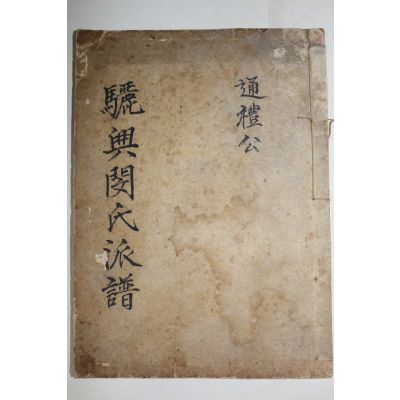 通禮公
驪興閔氏派譜